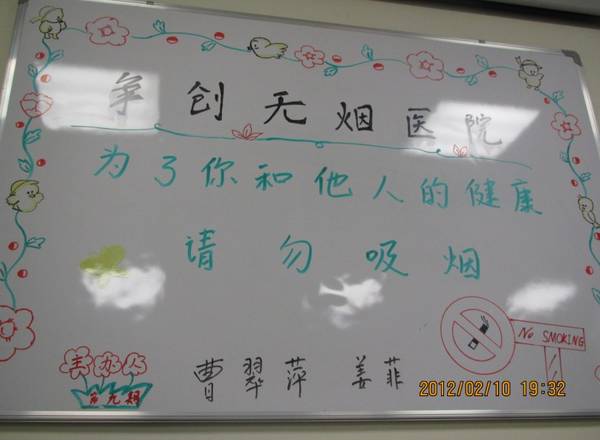 争创无烟医院
为了你和他人的健康
请勿吸烟
No SMOKING
主办人
第九期
曹翠萍 姜菲
2012/02/10 19:32